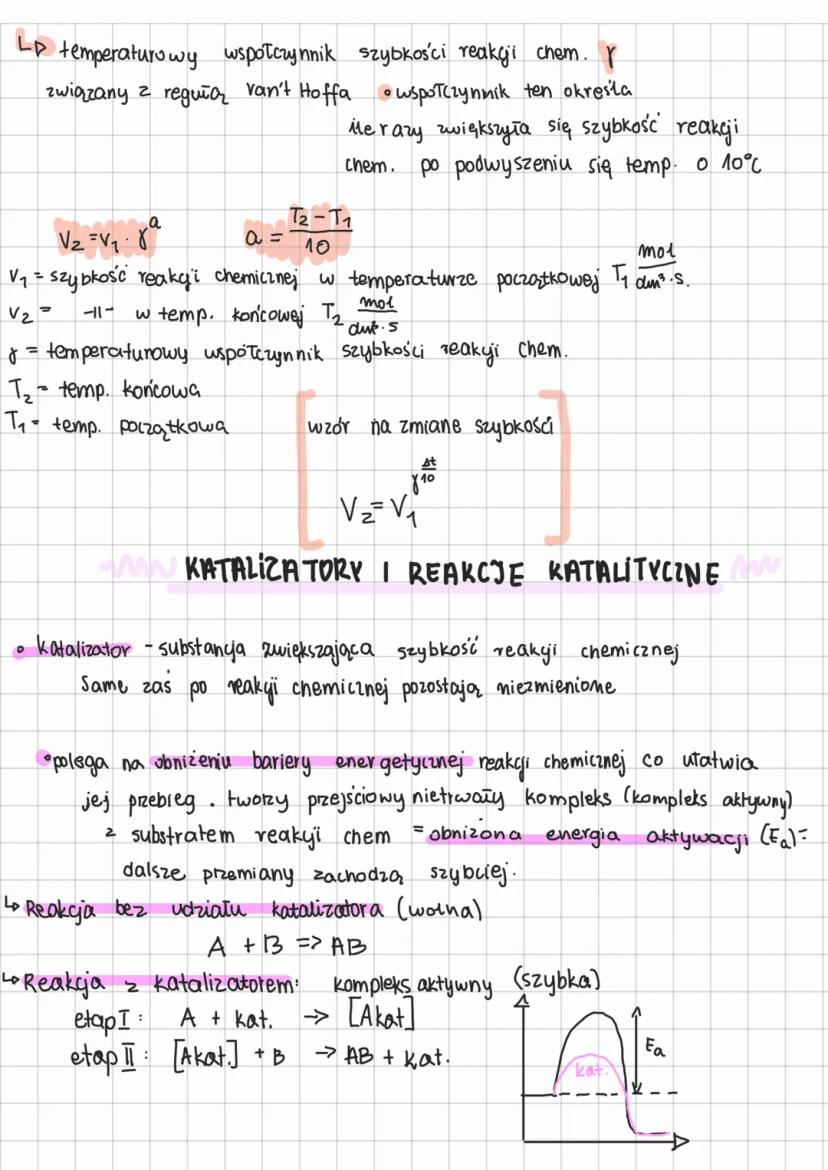 ↳ temperaturowy współczynnik szybkości reakcji chem. γ
związany z regułą van't Hoffa • współczynnik ten określa
ile razy zwiększyła się szybkość reakcji
chem. po podwyższeniu się temp. o 10°C
V₂ = V₁ · γ^a a = (T₂ - T₁)/10
V₁ = szybkość reakcji chemicznej w temperaturze początkowej T₁ mol/dm³·s.
V₂ = -||- w temp. końcowej T₂ mol/dm³·s
γ = temperaturowy współczynnik szybkości reakcji chem.
T₂ = temp. końcowa
T₁ = temp. początkowa
[wzór na zmiane szybkości
V₂ = V₁^γ^(Δt/10)]
KATALIZATORY I REAKCJE KATALITYCZNE
• katalizator - substancja zwiększająca szybkość reakcji chemicznej
Same zaś po reakcji chemicznej pozostają niezmienione
• polega na obniżeniu bariery energetycznej reakcji chemicznej co ułatwia
jej przebieg. tworzy przejściowy nietrwały kompleks (kompleks aktywny)
z substratem reakcji chem = obniżona energia aktywacji (Ea) =
dalsze przemiany zachodzą szybciej.
↳ Reakcja bez udziału katalizatora (wolna)
A + B => AB
↳ Reakcja z katalizatorem: kompleks aktywny (szybka)
etap I: A + kat. → [Akat]
etap II: [Akat.] + B → AB + kat.
Ea
kat.